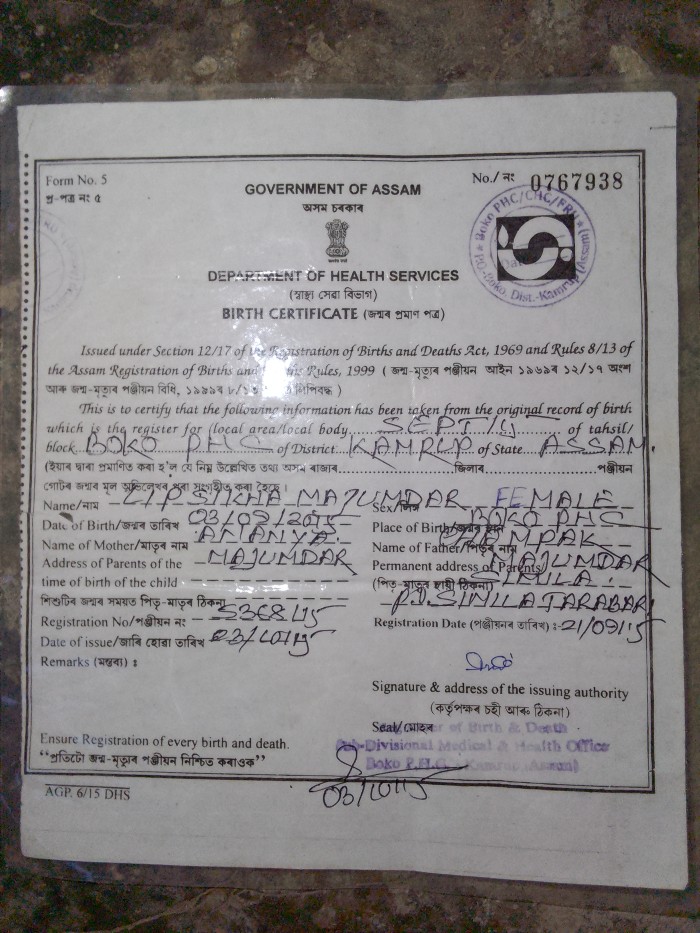 Form No. 5
প্ৰ-পত্ৰ নং ৫
No./ নং 0767938
GOVERNMENT OF ASSAM
অসম চৰকাৰ
Boko PHC/CHC/FRU
P.O.-Boko, Dist.-Kamrup (Assam)
DEPARTMENT OF HEALTH SERVICES
(স্বাস্থ্য সেৱা বিভাগ)
BIRTH CERTIFICATE (জন্মৰ প্ৰমাণ পত্ৰ)
Issued under Section 12/17 of the Registration of Births and Deaths Act, 1969 and Rules 8/13 of
the Assam Registration of Births and Rules, 1999 ( জন্ম-মৃত্যুৰ পঞ্জীয়ন আইন ১৯৬৯ৰ ১২/১৭ অংশ
আৰু জন্ম-মৃত্যুৰ পঞ্জীয়ন বিধি, ১৯৯৯ৰ ৮/১৩ লিপিবদ্ধ )
This is to certify that the following information has been taken from the original record of birth
which is the register for (local area/local body SEPT/15 of tahsil/
block BOKO PHC of District KAMRUP of State ASSAM.
(ইয়াৰ দ্বাৰা প্ৰমাণিত কৰা হ'ল যে নিম্ন উল্লেখিত তথ্য অসম ৰাজ্যৰ জিলাৰ পঞ্জীয়ন
গোটৰ জন্মৰ মূল অভিলেখৰ পৰা সংগৃহীত কৰা হৈছে।
Name/নাম LIPSIKHA MAJUMDAR Sex/লিঙ্গ FEMALE
Date of Birth/জন্মৰ তাৰিখ 03/09/2015 Place of Birth/জন্মৰ স্থান BOKO PHC
Name of Mother/মাতৃৰ নাম ANANYA Name of Father/পিতৃৰ নাম
Address of Parents of the MAJUMDAR Permanent address of Parents/ MAJUMDAR
time of birth of the child (পিতৃ-মাতৃৰ স্থায়ী ঠিকনা)
শিশুটিৰ জন্মৰ সময়ত পিতৃ-মাতৃৰ ঠিকনা
Registration No/পঞ্জীয়ন নং : 5368/15 Registration Date (পঞ্জীয়নৰ তাৰিখ) :-21/09/15
Date of issue/জাৰি হোৱা তাৰিখ 03/10/15
Remarks (মন্তব্য) :
Signature & address of the issuing authority
(কৰ্তৃপক্ষৰ চহী আৰু ঠিকনা)
Seal/মোহৰ
of Birth & Death
Sub-Divisional Medical & Health Office
Boko P.H.C. Kamrup (Assam)
Ensure Registration of every birth and death.
“প্ৰতিটো জন্ম-মৃত্যুৰ পঞ্জীয়ন নিশ্চিত কৰাওক”
03/10/15
AGP. 6/15 DHS